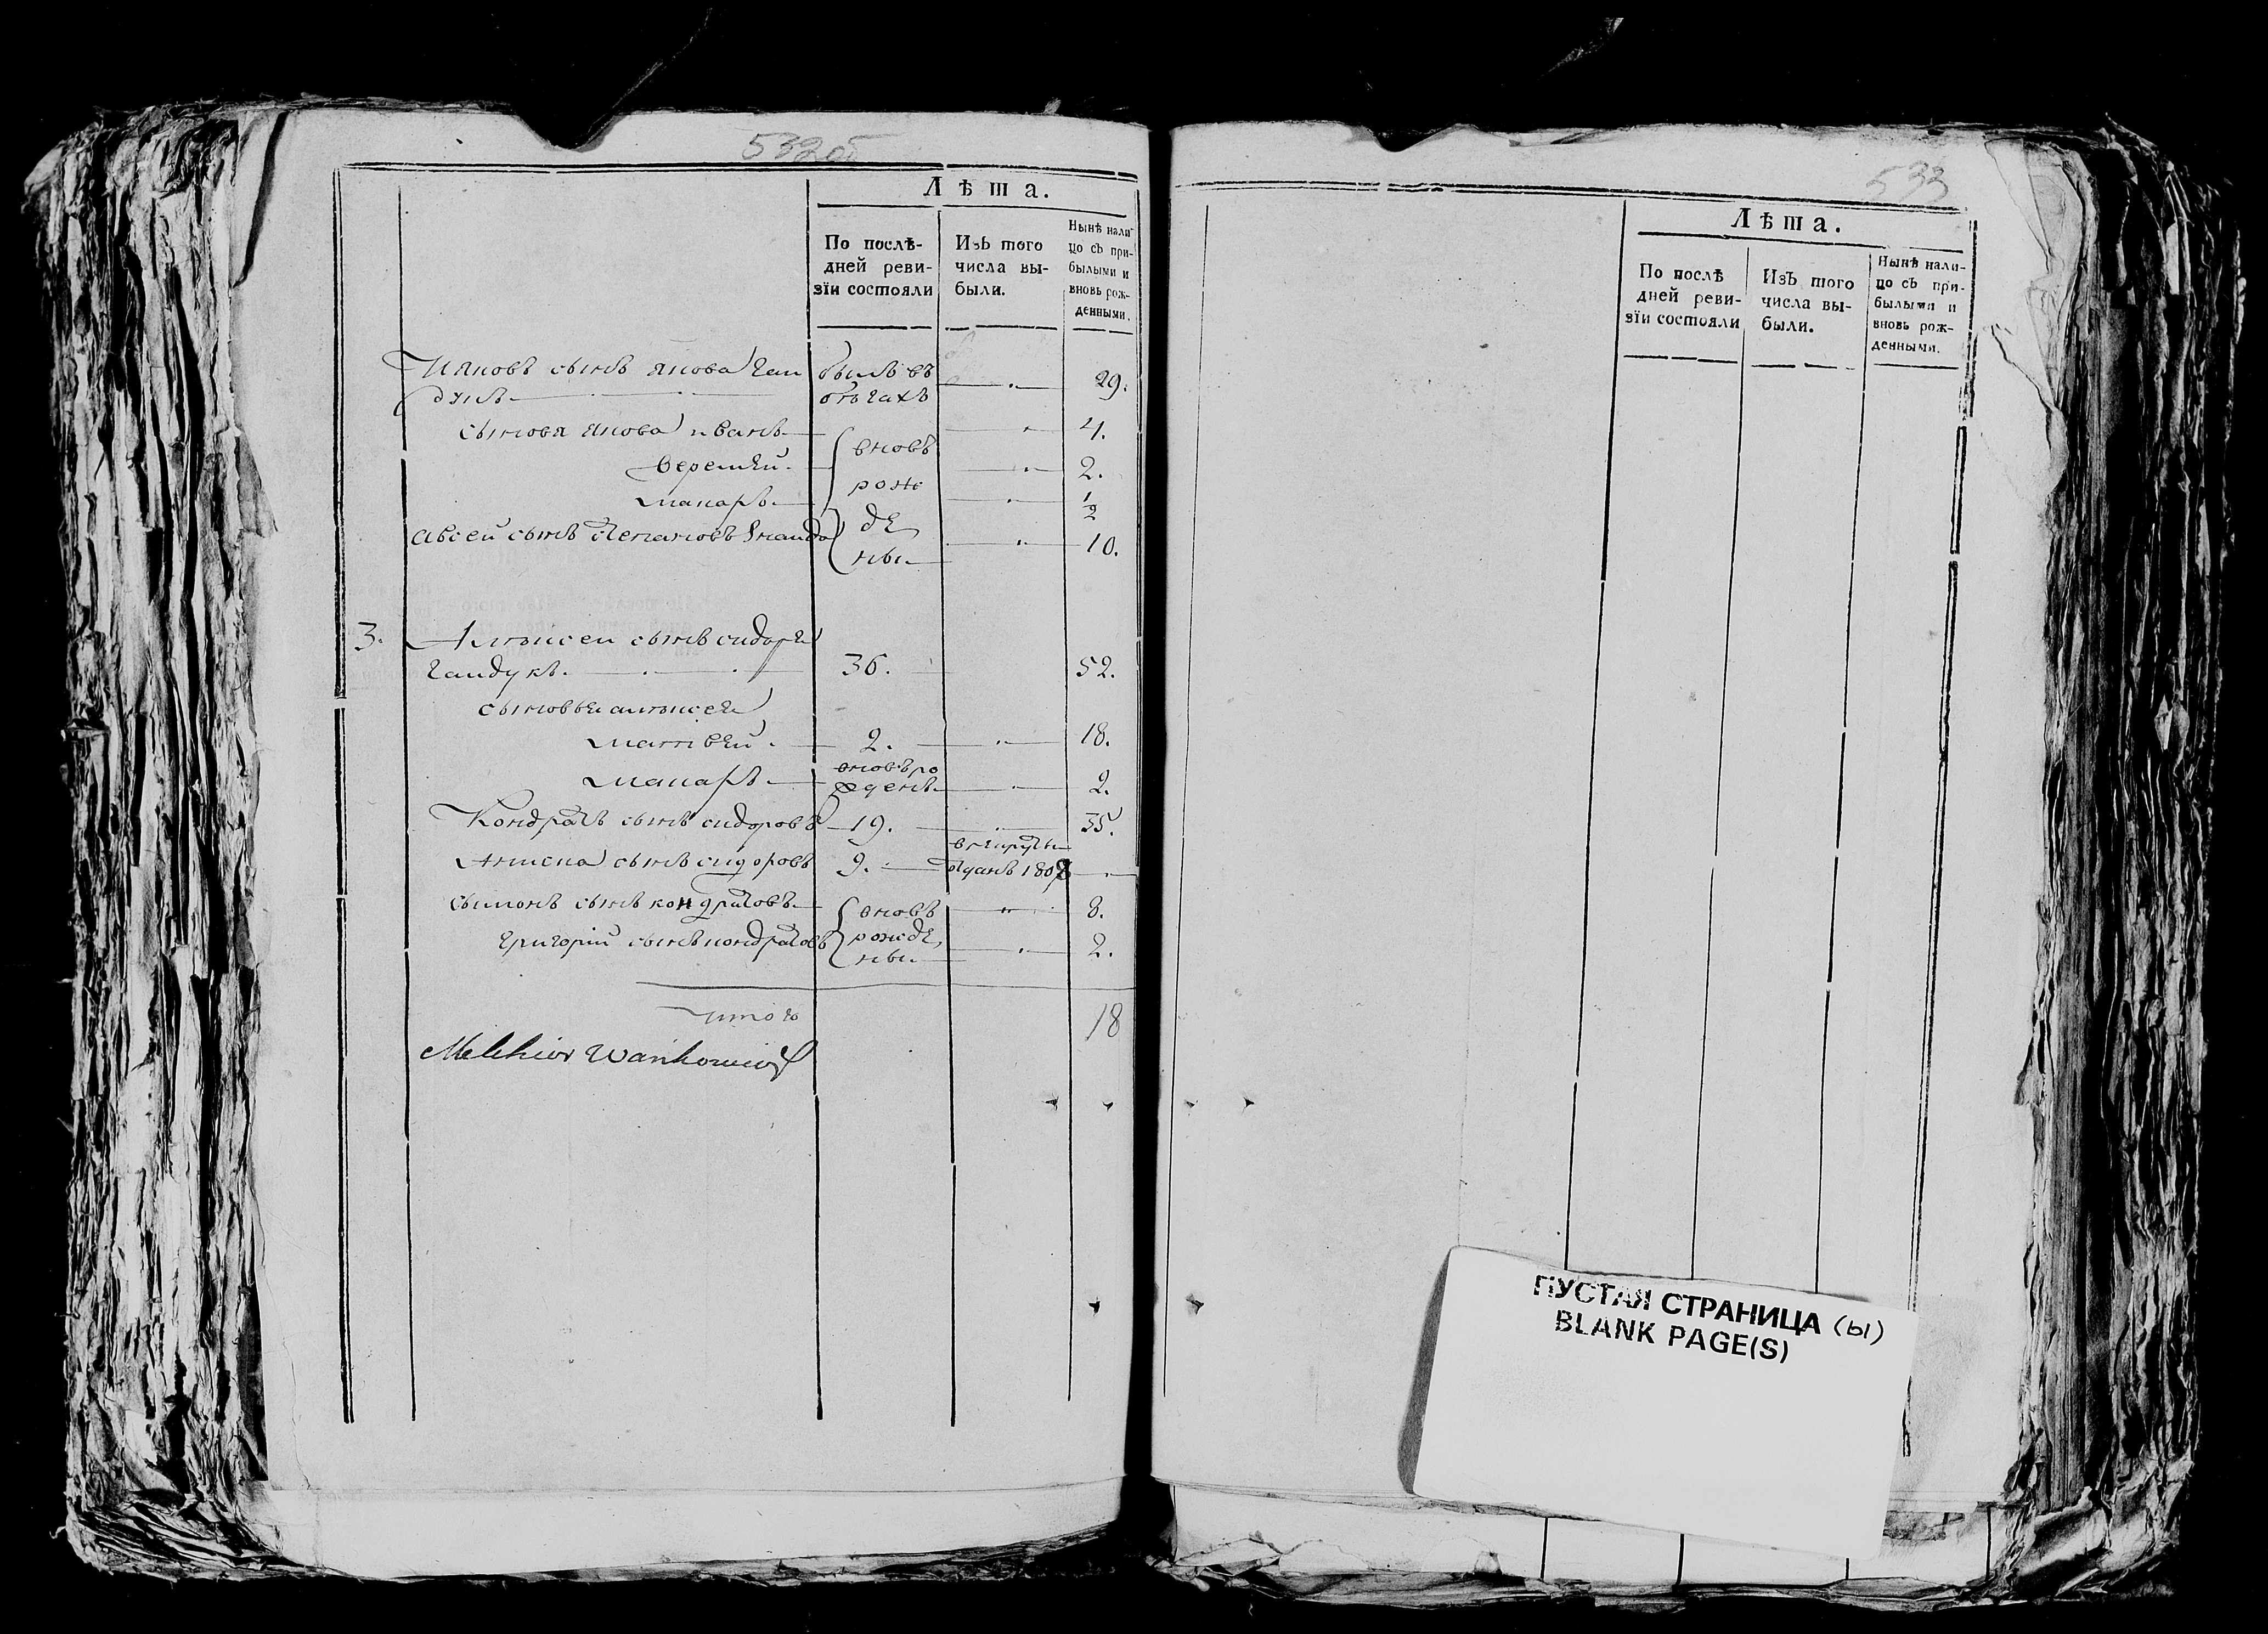 532об
Лѣта.
По послѣ-
дней реви-
зїи состояли
Изъ того
числа вы-
были.
Нынѣ нали-
цо съ при-
былыми и
вновь рож-
денными.
Яковъ сынъ якова Гай былъ въ 29.
дукъ бѣгахъ
сыновя якова иванъ 4.
вновь
еремѣй 2.
рож
макаръ 1/2
Авсей сынъ степановъ 10.
де
ны
3. Алѣксей сынъ сидора
Гайдукъ. 36. 52.
сыновья алѣксея
матвѣй. 2. 18.
макаръ вновь ро 2.
жденъ
Кондратъ сынъ сидоровъ 19. 35.
в рекруты
сынъ сидоровъ 9. отданъ 1808
сымонъ сынъ кондратовъ вновь 8.
григорій сынъ кондратовъ рожде 2.
ны
итого 18
Melchior Wańkowicz
533
Лѣта.
По послѣ
дней реви-
зїи состояли
Изъ того
числа вы-
были.
Нынѣ нали-
цо съ при-
былыми и
вновь рож-
денными.
ПУСТАЯ СТРАНИЦА (Ы)
BLANK PAGE(S)